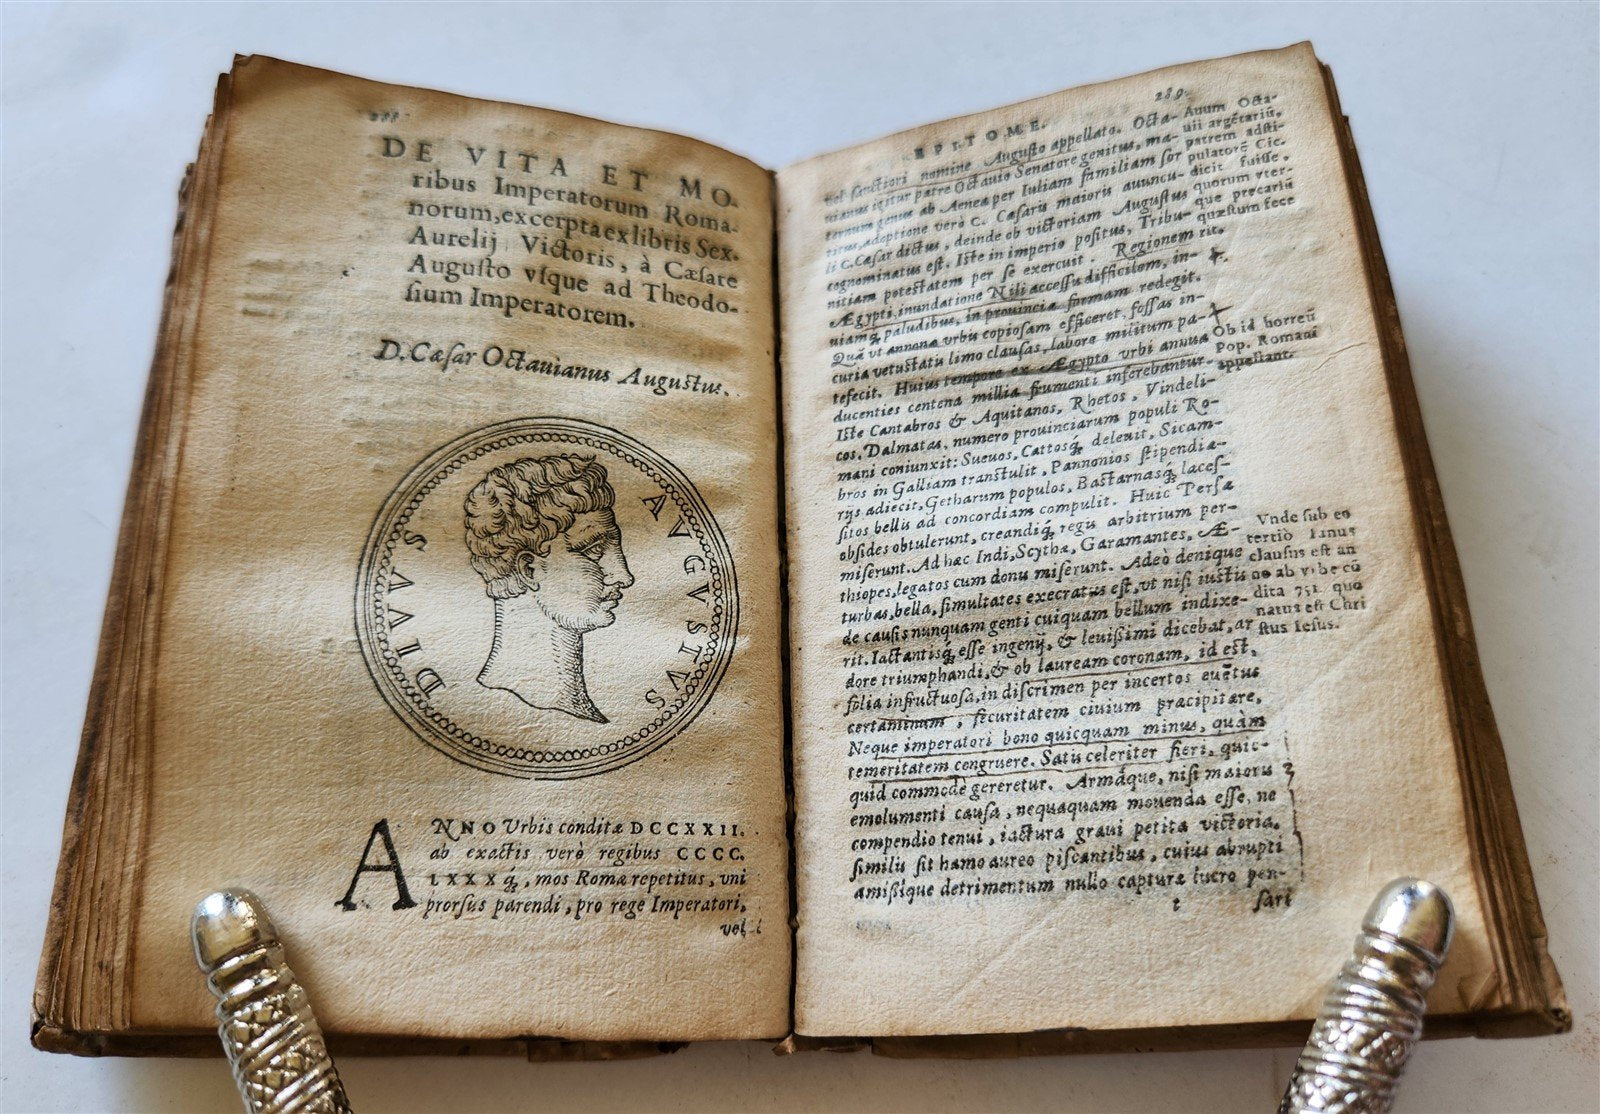 288
DE VITA ET MO-
ribus Imperatorum Roma-
norum, excerpta ex libris Sex.
Aurelij Victoris, à Cæsare
Augusto vsque ad Theodo-
sium Imperatorem.
D. Cæsar Octauianus Augustus.
DIVVS AVGVSTVS
ANNO Vrbis conditæ DCCXXII.
ab exactis verò regibus CCCC.
LXXXq́, mos Romæ repetitus, vni
prorsus parendi, pro rege Imperatori,
vel
EPITOME. 289.
vel sanctiori nomine Augusto appellato. Octa-
uianus igitur patre Octauio Senatore genitus, ma-
ternum genus ab Aenea per Iuliam familiam sor
titus, adoptione verò C. Cæsaris maioris auuncu-
li C. Cæsar dictus, deinde ob victoriam Augustus
cognominatus est. Iste in imperio positus, Tribu-
nitiam potestatem per se exercuit. Regionem
Ægypti inundatione Nili accessu difficilem, in-
uiamq́ paludibus, in prouinciæ formam redegit.
Quā vt annonæ vrbis copiosam efficeret, fossas in-
curia vetustatis limo clausas, labore militum pa-
tefecit. Huius tempore ex Ægypto vrbi annua
ducenties centena millia frumenti inferebantur.
Iste Cantabros & Aquitanos, Rhetos, Vindeli-
cos, Dalmatas, numero prouinciarum populi Ro-
mani coniunxit: Sueuos, Cattosq́ deleuit, Sicam-
bros in Galliam transtulit, Pannonios stipendia-
rijs adiecit, Getharum populos, Bastarnasq́ laces-
sitos bellis ad concordiam compulit. Huic Persæ
obsides obtulerunt, creandiq́ regis arbitrium per-
miserunt. Ad hæc Indi, Scythæ, Garamantes, Æ-
thiopes, legatos cum donis miserunt. Adeò denique
turbas, bella, simultates execratus est, vt nisi iustis
de causis nunquam genti cuiquam bellum indixe-
rit. Iactantisq́ esse ingenij, & leuißimi dicebat, ar
dore triumphandi, & ob lauream coronam, id est,
folia infructuosa, in discrimen per incertos euētus
certaminum, securitatem ciuium præcipitare,
Neque imperatori bono quicquam minus, quàm
temeritatem congruere. Satis celeriter fieri, quic-
quid commodè gereretur. Armáque, nisi maioris
emolumenti causa, nequaquam mouenda esse, ne
compendio tenui, iactura graui petita victoria,
similis sit hamo aureo piscantibus, cuius abrupti
amißique detrimentum nullo capturæ lucro pen-
t sari
Auum Octa-
uii argētariū,
patrem adsti-
pulatorē Cic.
dicit fuisse.
quorum vter-
que precariū
quæstum fece
rit.
Ob id horreū
Pop. Romani
appellant.
Vnde sub eo
tertio Ianus
clausus est an
no ab vrbe cō
dita 751. quo
natus est Chri
stus Iesus.